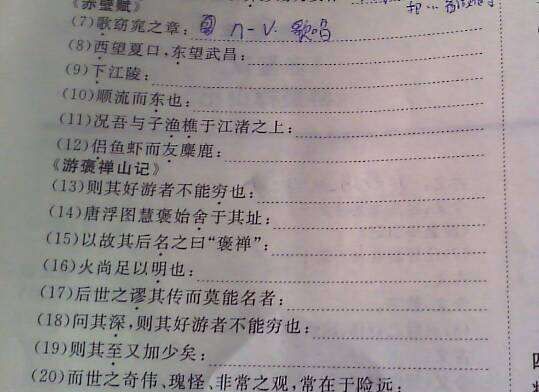 《赤壁赋》
(7)歌窈窕之章: n-v. 歌唱
(8)西望夏口,东望武昌:
(9)下江陵:
(10)顺流而东也:
(11)况吾与子渔樵于江渚之上:
(12)侣鱼虾而友麋鹿:
《游褒禅山记》
(13)则其好游者不能穷也:
(14)唐浮图慧褒始舍于其址:
(15)以故其后名之曰“褒禅”:
(16)火尚足以明也:
(17)后世之谬其传而莫能名者:
(18)问其深,则其好游者不能穷也:
(19)则其至又加少矣:
(20)而世之奇伟、瑰怪、非常之观,常在于险远:
四